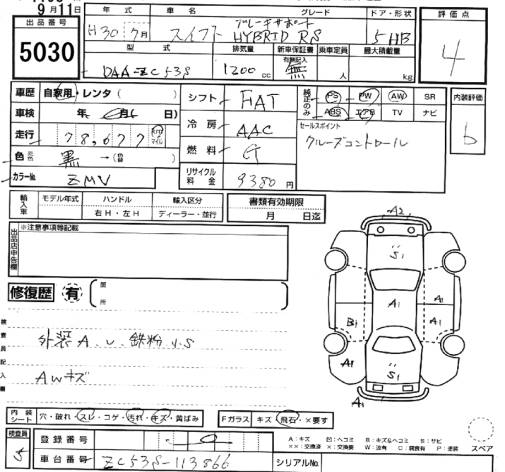 9月11日
出品番号
5030
年式 車名 グレード ドア・形状
H30 7月 スイフト ブレーキサポート
HYBRID RS 5 HB
型式 排気量 新車保証書 乗車定員 最大積載量
有無記入
DAA-ZC53S 1200cc 無 人 kg
評価点
4
車歴 自家用・レンタ( )
車検 年 月
走行 78,677 km マイル
色 黒 →(替 )
カラーNo. ZMV
シフト FAT
冷房 AAC
燃料 G
リサイクル料金 9380円
純正のみ PS PW AW SR
ABS エアB TV ナビ
セールスポイント
クルーズコントロール
内装評価
b
輸入車 モデル年式 ハンドル 輸入区分
年 右H・左H ディーラー・並行
書類有効期限
月 日迄
出品店申告欄
※注意事項等記載
修復歴 有 箇所
検査員記入欄
外装A.U.鉄粉.U.S
AWキズ
A2
S1
A1
A1
B1
A1
A1
S1
A1
内装シート 穴・破れ・スレ・コゲ・汚れ・キズ・黄ばみ
Fガラス キズ・飛石・×要す
スペア
検査員
5
登録番号
車台番号 ZC53S-113866
シリアルNo.
A:キズ 凹:ヘコミ B:キズ&ヘコミ S:サビ
××:交換済 ×:要交換 W:波有 C:腐食有 P:塗装